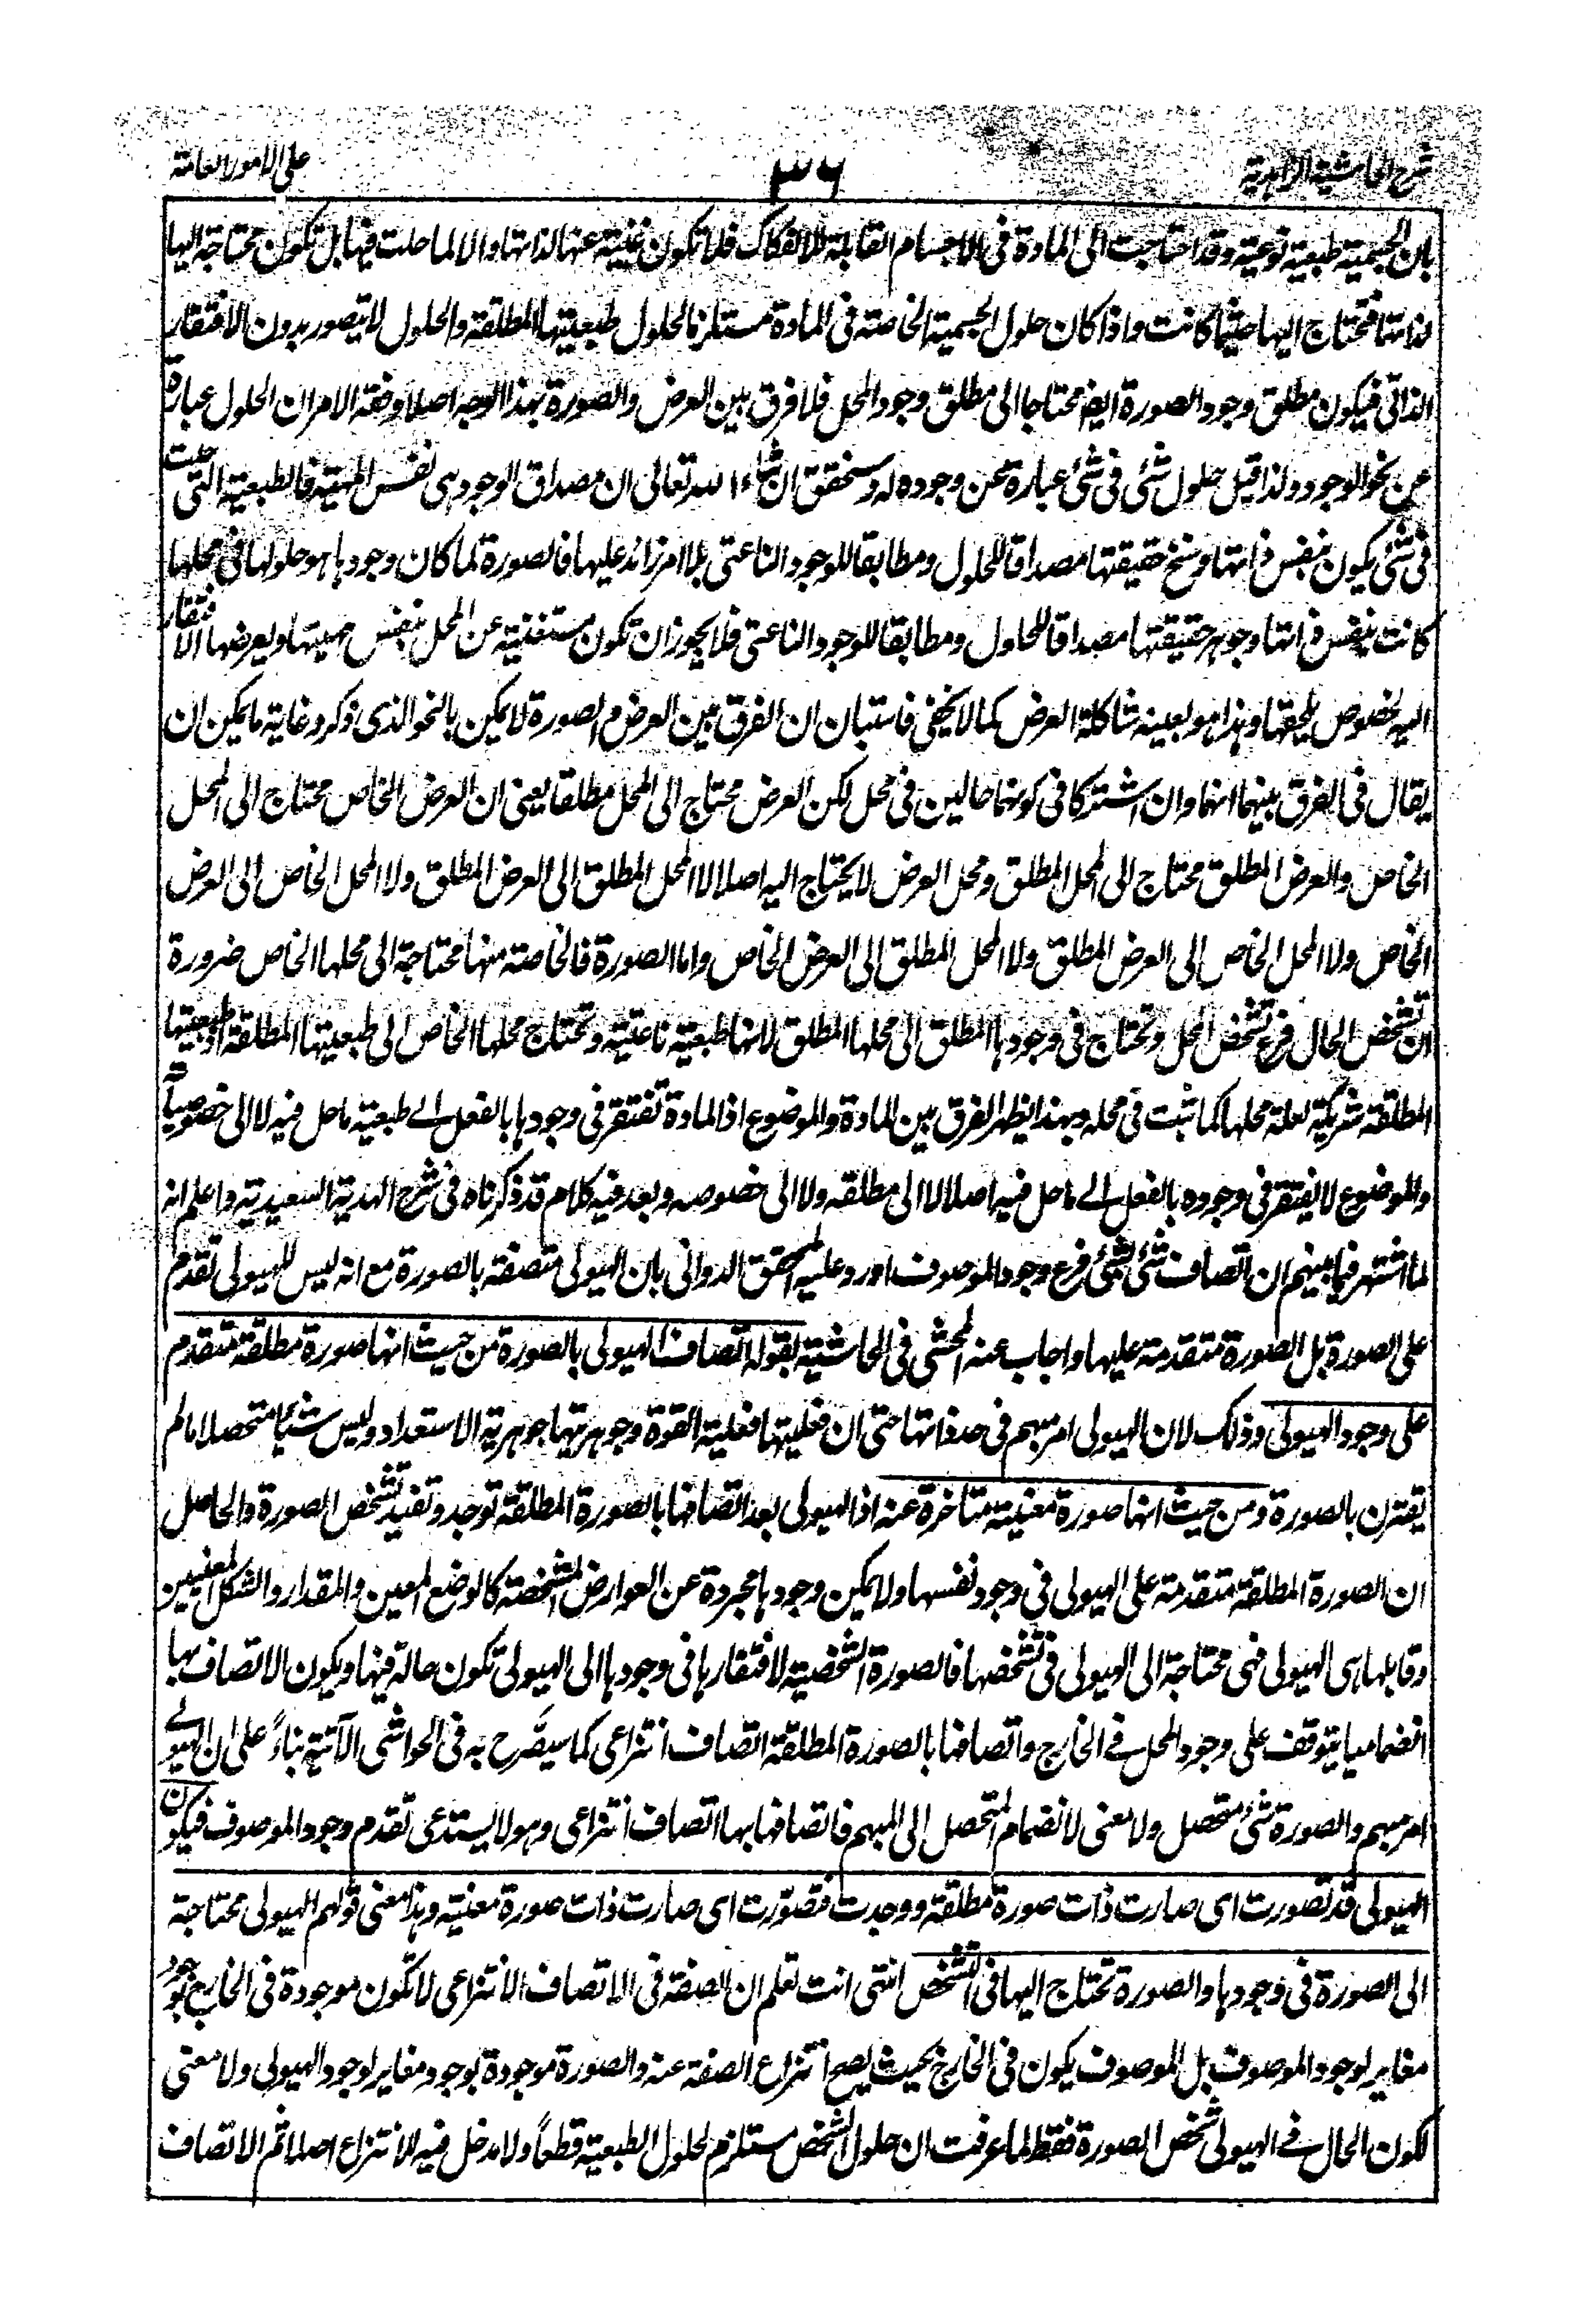 شرح الحاشية الزاهدية
٣٦
على الامور العامة
بان الجسمية طبعية نوعية وقد احتاجت الى المادة فى الاجسام القابلة للانفكاك فلا تكون غنية عنها لذاتها والا لما حلت فيها بل تكون محتاجة اليها
لذاتها فتحتاج اليها حيثما كانت واذا كان حلول الجسمية الخاصة فى المادة مستلزما لحلول طبعيتها المطلقة والحلول لا يتصور بدون الافتقار
الذاتى فيكون مطلق وجود الصورة ايضا محتاجا الى مطلق وجود المحل فلا فرق بين العرض والصورة بهذا الوجه اصلا وفقه الامر ان الحلول عبارة
عن نحو الوجود ولذا قيل حلول شئ فى شئ عبارة عن وجوده له وستحقق ان شاء الله تعالى ان مصداق الوجود هى نفس المهية فالطبعية التى حلت
فى شئ يكون بنفس ذاتها وسنخ حقيقتها مصداقا للحلول ومطابقا للوجود الناعتى بلا امر زائد عليها فالصورة لما كان وجودها هو حلولها فى محلها
كانت بنفس ذاتها وجوهر حقيقتها مصداقا للحلول ومطابقا للوجود الناعتى فلا يجوز ان تكون مستغنية عن المحل بنفس مهيتها ويعرضها الافتقار
اليه لخصوص يلحقها وهذا هو بعينه شاكلة العرض كما لا يخفى فاستبان ان الفرق بين العرض والصورة لا يمكن بالنحو الذى ذكر وغاية ما يمكن ان
يقال فى الفرق بينهما انهما وان اشتركا فى كونهما حالين فى محل لكن العرض محتاج الى المحل مطلقا يعنى ان العرض الخاص محتاج الى المحل
الخاص والعرض المطلق محتاج الى المحل المطلق ومحل العرض لا يحتاج اليه اصلا لا المحل المطلق الى العرض المطلق ولا المحل الخاص الى العرض
الخاص ولا المحل الخاص الى العرض المطلق ولا المحل المطلق الى العرض الخاص واما الصورة فالخاصة منها محتاجة الى محلها الخاص ضرورة
ان تشخص الحال فرع تشخص المحل وتحتاج فى وجودها المطلق الى محلها المطلق لانها طبعية ناعتية وتحتاج محلها الخاص الى طبعيتها المطلقة اذ طبعيتها
المطلقة شريكة لعلة محلها كما ثبت فى محله وبهذا يظهر الفرق بين المادة والموضوع اذ المادة تفتقر فى وجودها بالفعل الے طبعية ما حل فيه لا الى خصوصياته
والموضوع لا يفتقر فى وجوده بالفعل الے ما حل فيه اصلا لا الى مطلقه ولا الى خصوصه وبعد فيه كلام قد ذكرناه فى شرح الهدية السعيدية واعلم انه
لما اشتهر فيما بينهم ان اتصاف شئ لشئ فرع وجود الموصوف اورد عليه المحقق الدوانى بان الهيولى متصفة بالصورة مع انه ليس للهيولى تقدم
على الصورة بل الصورة متقدمة عليها واجاب عنه المحشى فى الحاشية بقوله اتصاف الهيولى بالصورة من حيث انها صورة مطلقة متقدم
على وجود الهيولى وذلك لان الهيولى امر مبهم فى حد ذاتها حتى ان فعليتها فعلية القوة وجوهريتها جوهرية الاستعداد وليس شيئا متحصلا ما لم
يقترن بالصورة ومن حيث انها صورة معينة متاخرة عنه اذ الهيولى بعد اتصافها بالصورة المطلقة توجد وتفيد تشخص الصورة والحاصل
ان الصورة المطلقة متقدمة على الهيولى فى وجود نفسها ولا يمكن وجودها مجردة عن العوارض المشخصة كالوضع المعين والمقدار والشكل المعينين
وقابلها هى الهيولى فهى محتاجة الى الهيولى فى تشخصها فالصورة الشخصية لافتقارها فى وجودها الى الهيولى تكون حالة فيها ويكون الاتصاف بها
انضماميا يتوقف على وجود المحل فے الخارج واتصافها بالصورة المطلقة اتصاف انتزاعى كما سيصرح به فى الحواشى الآتية بناءً على ان الهيولے
امر مبهم والصورة شئ متحصل ولا معنى لانضمام المتحصل الى المبهم فاتصافها بها اتصاف انتزاعى وهو لا يستدعى تقدم وجود الموصوف فيكون
الهيولى قد تصورت اى صارت ذات صورة مطلقة ووجدت فتصورت اى صارت ذات صورة معينة وهذا معنى قولهم الهيولى محتاجة
الى الصورة فى وجودها والصورة تحتاج اليها فى التشخص انتهى انت تعلم ان الصفة فى الاتصاف الانتزاعى لا تكون موجودة فى الخارج بوجود
مغاير لوجود الموصوف بل الموصوف يكون فى الخارج بحيث يصح انتزاع الصفة عنه والصورة موجودة بوجود مغاير لوجود الهيولى ولا معنى
لكون الحال فے الهيولى تشخص الصورة فقط لما عرفت ان حلول الشخص مستلزم لحلول الطبعية قطعاً ولا مدخل فيه للانتزاع اصلا ثم الاتصاف